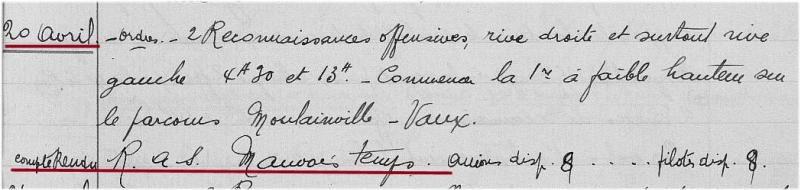 20 Avril. - ordres. - 2 Reconnaissances offensives, rive droite et surtout rive
gauche 4H30 et 13H. - Commencer la 1re à faible hauteur sur
le parcours Moulainville - Vaux.
compte Rendu R. a S. Mauvais temps. avions disp. 8 .... pilotes disp. 8.